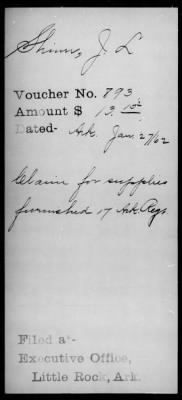 J. L
Voucher No. 893
Amount $ 13.
Dated- Ark. Jan. 27/62
Claim for supplies
furnished 17 Ark. Regt
Filed at-
Executive Office,
Little Rock, Ark.